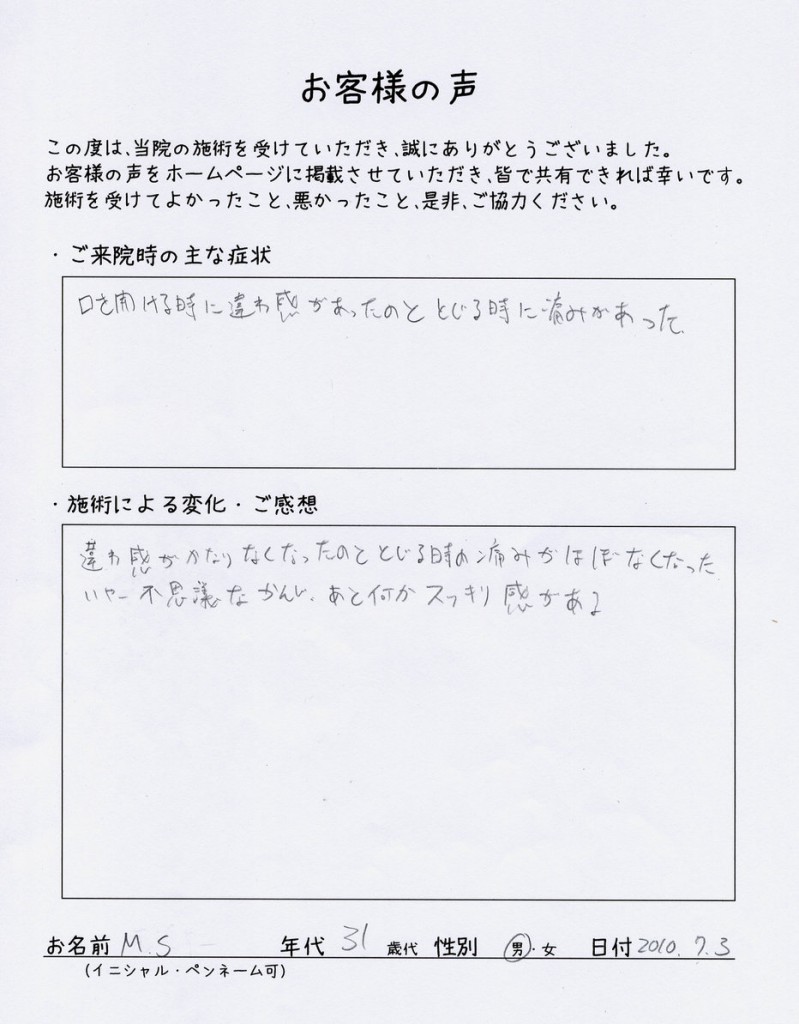 お客様の声
この度は、当院の施術を受けていただき、誠にありがとうございました。
お客様の声をホームページに掲載させていただき、皆で共有できれば幸いです。
施術を受けてよかったこと、悪かったこと、是非、ご協力ください。
・ご来院時の主な症状
口を開ける時に違わ感があったのと とじる時に痛みがあった
・施術による変化・ご感想
違わ感がかなりなくなったのと とじる時の痛みがほぼなくなった
いやー不思議なかんじ、あと何かスッキリ感がある
お名前 M.S 年代 31 歳代 性別 男・女 日付 2010.7.3
(イニシャル・ペンネーム可)